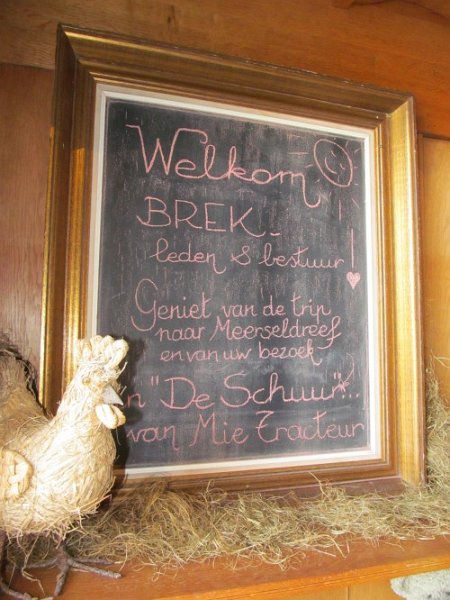 Welkom
BREK -
leden & bestuur
Geniet van de trip
naar Meerseldreef
en van uw bezoek
in "De Schuur"...
van Mie Tracteur